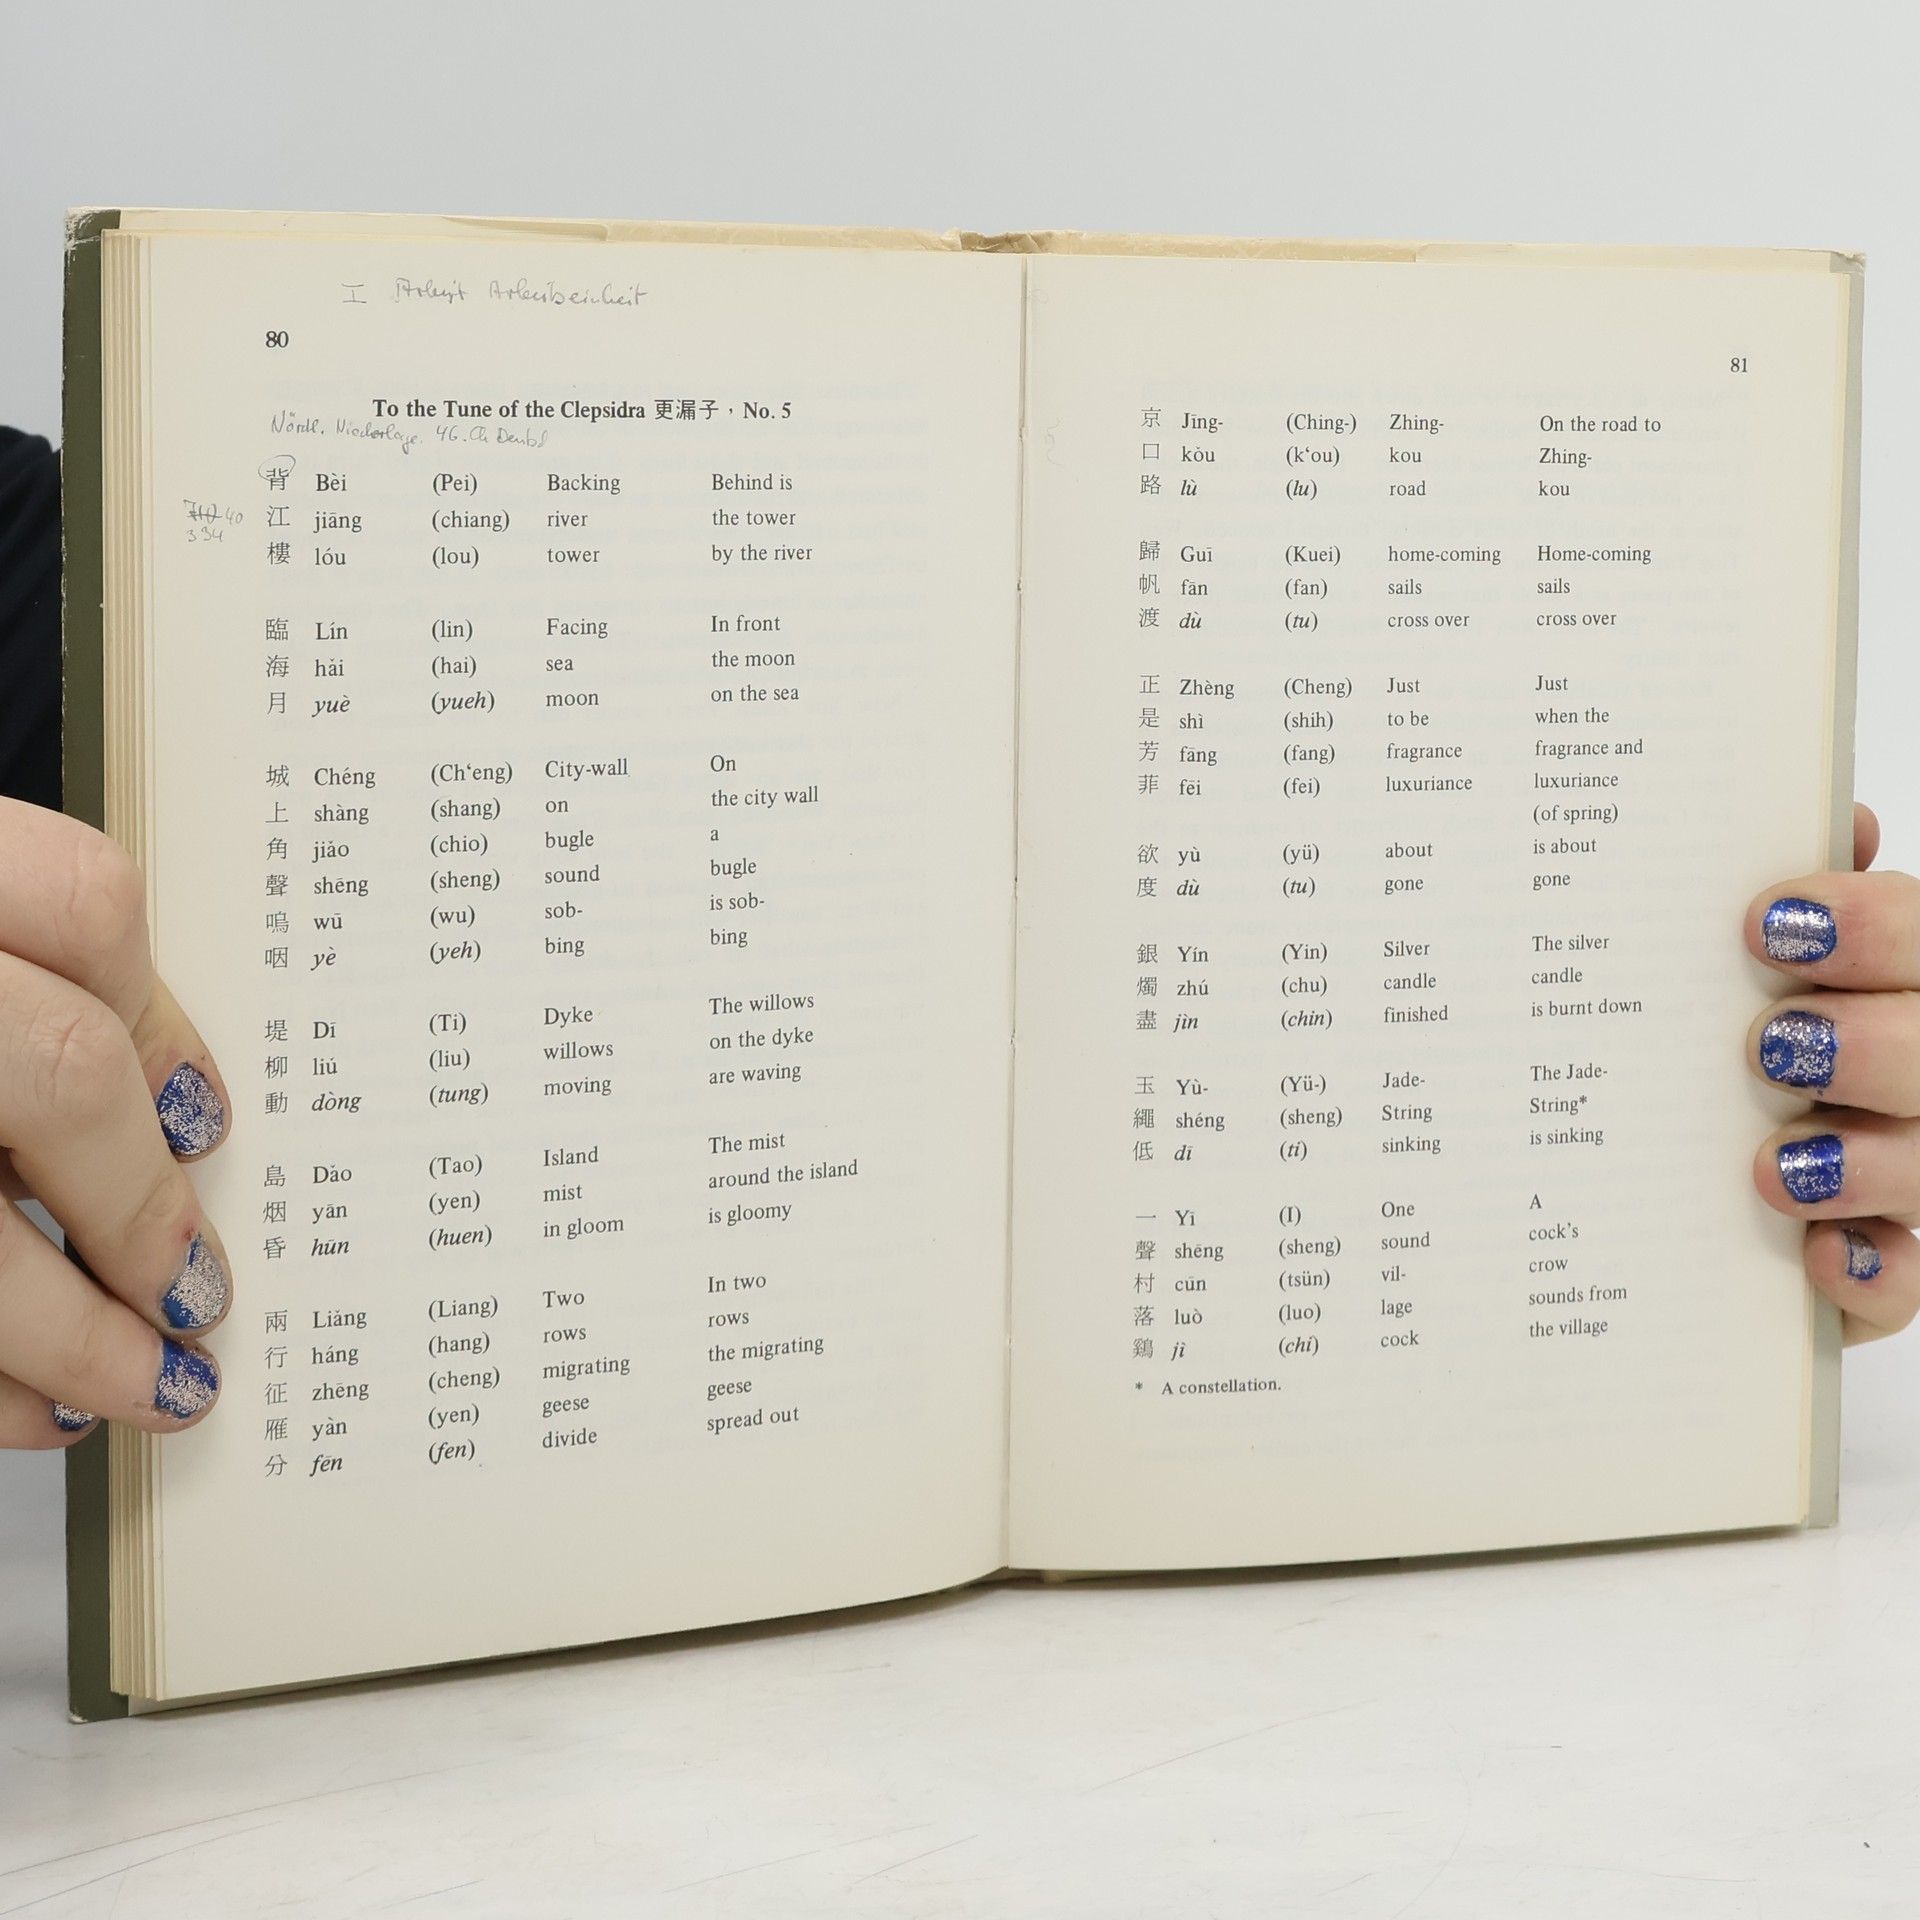 80
To the Tune of the Clepsidra 更漏子，No. 5
背 Bèi (Pei) Backing Behind is
江 jiāng (chiang) river the tower
樓 lóu (lou) tower by the river
臨 Lín (lin) Facing In front
海 hǎi (hai) sea the moon
月 yuè (yueh) moon on the sea
城 Chéng (Ch‘eng) City-wall On
上 shàng (shang) on the city wall
角 jiǎo (chio) bugle a
聲 shēng (sheng) sound bugle
嗚 wū (wu) sob- is sob-
咽 yè (yeh) bing bing
堤 Dī (Ti) Dyke The willows
柳 liǔ (liu) willows on the dyke
動 dòng (tung) moving are waving
島 Dǎo (Tao) Island The mist
烟 yān (yen) mist around the island
昏 hūn (huen) in gloom is gloomy
兩 Liǎng (Liang) Two In two
行 háng (hang) rows rows
征 zhēng (cheng) migrating the migrating
雁 yàn (yen) geese geese
分 fēn (fen) divide spread out
81
京 Jīng- (Ching-) Zhing- On the road to
口 kǒu (k‘ou) kou Zhing-
路 lù (lu) road kou
歸 Guī (Kuei) home-coming Home-coming
帆 fān (fan) sails sails
渡 dù (tu) cross over cross over
正 Zhèng (Cheng) Just Just
是 shì (shih) to be when the
芳 fāng (fang) fragrance fragrance and
菲 fēi (fei) luxuriance luxuriance
(of spring)
欲 yù (yü) about is about
度 dù (tu) gone gone
銀 Yín (Yin) Silver The silver
燭 zhú (chu) candle candle
盡 jìn (chin) finished is burnt down
玉 Yù- (Yü-) Jade- The Jade-
繩 shéng (sheng) String String*
低 dī (ti) sinking is sinking
一 Yī (I) One A
聲 shēng (sheng) sound cock's
村 cūn (tsün) vil- crow
落 luò (luo) lage sounds from
鷄 jī (chi) cock the village
* A constellation.